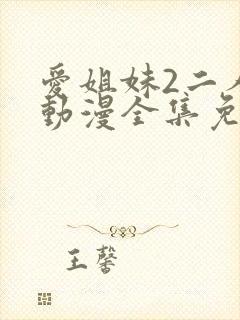 愛姐妹2二
動漫全集免
王馨